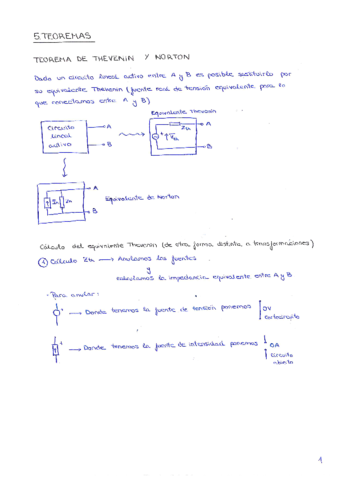 5. TEOREMAS
TEOREMA DE THEVENIN Y NORTON
Dado un circuito lineal activo entre A y B es posible sustituirlo por
su equivalente Thevenin (fuente real de tensión equivalente para lo
que conectamos entre A y B)
Equivalente Thevenin
Circuito
lineal
activo
A
B
Zth
A
B
A
B
Equivalente de Norton
Cálculo del equivalente Thevenin (de otra forma distinta a transformaciones)
1 Cálculo Zth → Anulamos las fuentes
y
calculamos la impedancia equivalente entre A y B
- Para anular:
+ → Donde tenemos la fuente de tensión ponemos 0V
cortocircuito
+ → Donde tenemos la fuente de intensidad ponemos 0A
circuito
abierto
1